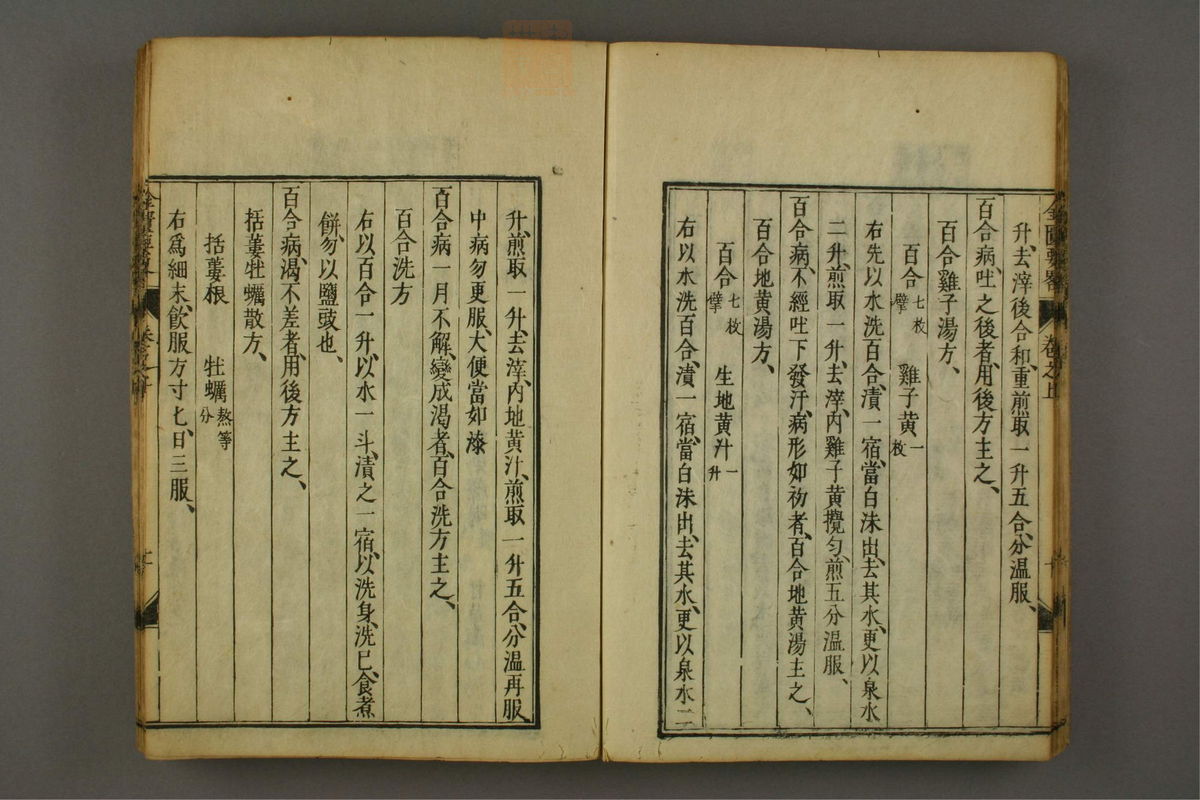 升去滓後合和、重煎取一升五合、分温服、
百合病、吐之後者、用後方主之、
百合雞子湯方、
百合七枚擘　雞子黄一枚
右先以水洗百合、漬一宿、當白沫出、去其水、更以泉水
二升、煎取一升、去滓、内雞子黄攪勻、煎五分温服、
百合病、不經吐下發汗、病形如初者、百合地黄湯主之、
百合地黄湯方、
百合七枚擘　生地黄汁一升
右以水洗百合、漬一宿、當白沫出、去其水、更以泉水二
升、煎取一升、去滓、内地黄汁、煎取一升五合、分温再服、
中病勿更服、大便當如漆
百合病一月不解、變成渴者、百合洗方主之、
百合洗方
右以百合一升、以水一斗、漬之一宿、以洗身、洗已、食煮
餅、勿以鹽豉也、
百合病、渴不差者、用後方主之、
括蔞牡蠣散方、
括蔞根　牡蠣熬等分
右爲細末、飲服方寸匕、日三服、